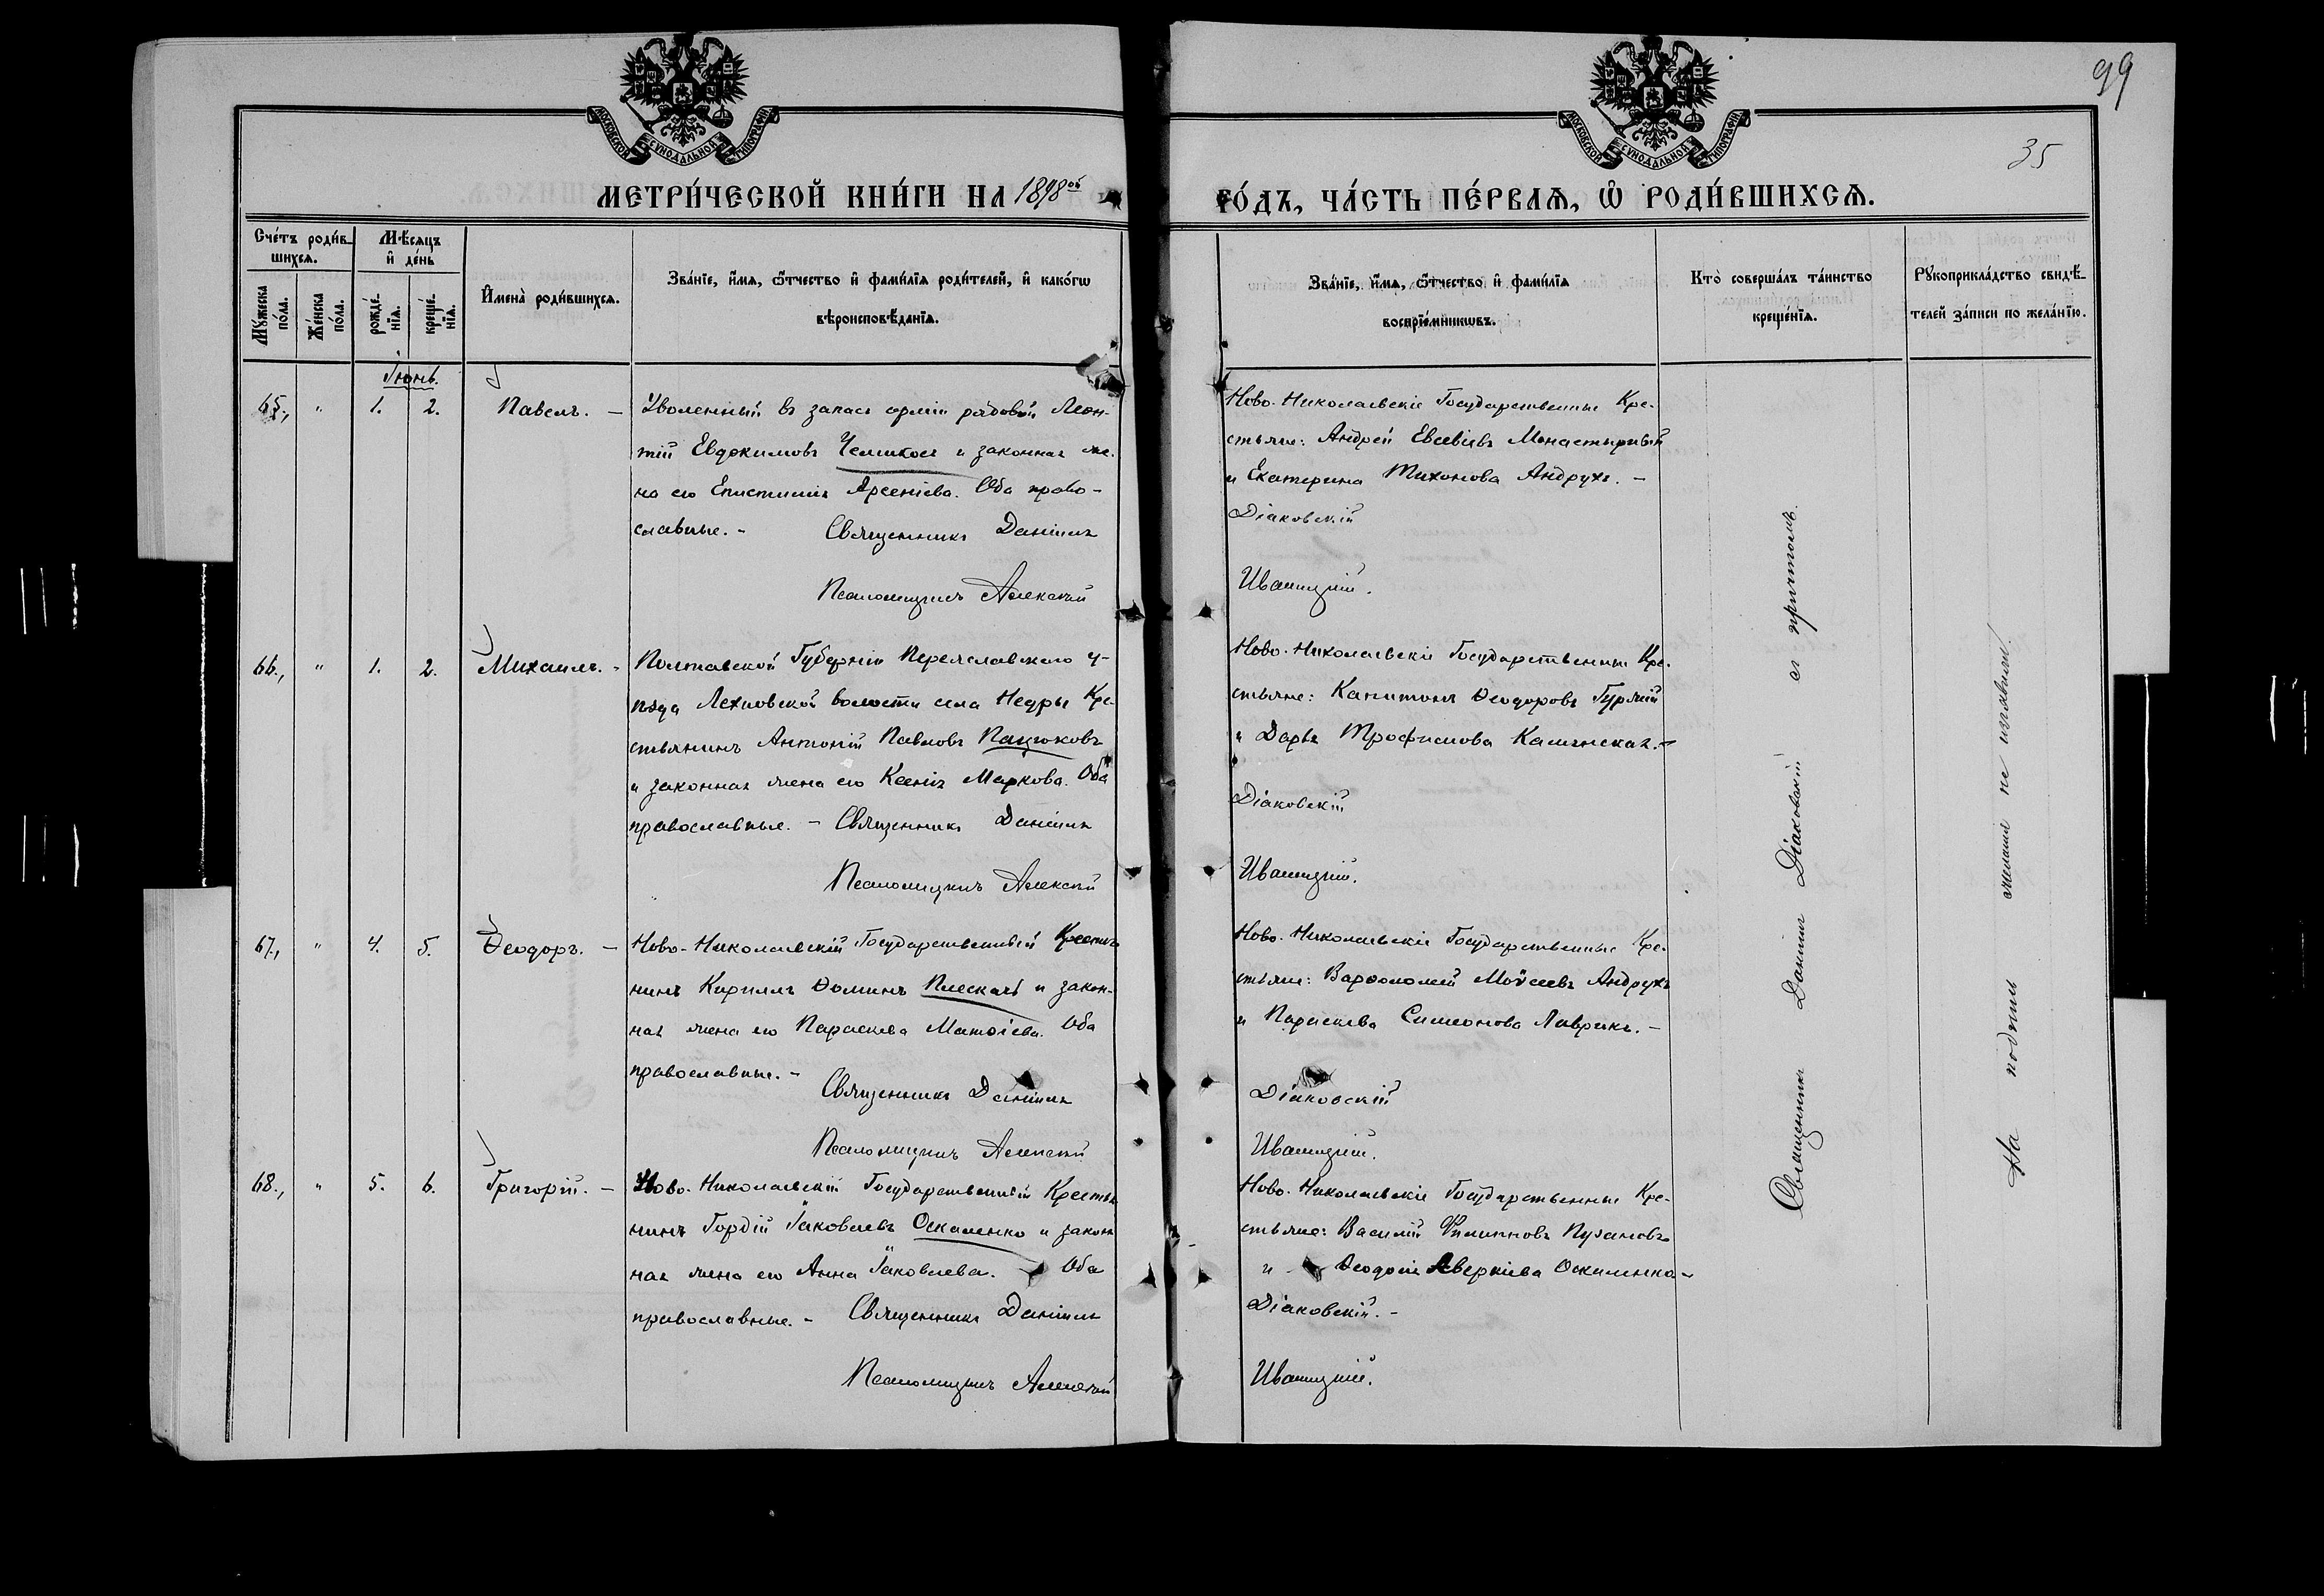 99
35
МОСКОВСКОЙ СѴНОДАЛЬНОЙ ТИПОГРАФІИ
МОСКОВСКОЙ СѴНОДАЛЬНОЙ ТИПОГРАФІИ
МЕТРИ́ЧЕСКОЙ КНИ́ГИ НА 1898ой
ГО́ДЪ, ЧА́СТЬ ПЕ́РВАѦ, Ѡ РОДИ́ВШИХСѦ.
Сче́тъ роди́в-
шихсѧ.
Мѣ́сѧцъ
и҆ де́нь
Мꙋ́жеска
по́ла.
Же́нска
по́ла.
рожде́-
нїѧ.
креще́-
нїѧ.
И҆мена̀ роди́вшихсѧ.
Зва́нїе, и҆́мѧ, ѻ҆́тчество и҆ фами́лїѧ роди́телей, и҆ како́гѡ
вѣроисповѣ́данїѧ.
Зва́нїе, и҆́мѧ, ѻ҆́тчество и҆ фами́лїѧ
воспрїе́мникѡвъ.
Кто̀ соверша́лъ та́инство
креще́нїѧ.
Рꙋкоприкла́дство свидѣ́-
телей за́писи по жела́нїю.
Іюнь.
65., " 1. 2. Павелъ. —
Уволенный въ запасъ арміи рядовой Леон-
тій Евдокимовъ и законная же-
на его Епистимія Арсеніева. Оба право-
славные. - Священникъ Даніилъ
Псаломщикъ Алексѣй
Ново-Николаевскіе Государственные Кре-
стьяне: Андрей Евсевіевъ Монастырный
и Екатерина Тихонова Андрухъ. -
Діаковскій
Иваницкій.
66., " 1. 2. Михаилъ. -
Полтавской Губерніи Переяславскаго у-
ѣзда волости села Недры Кре-
стьянинъ Антоній Павловъ Пацюковъ
и законная жена его Ксенія Маркова. Оба
православные. - Священникъ Даніилъ
Псаломщикъ Алексѣй
Ново-Николаевскіе Государственные Кре-
стьяне: Капитонъ Ѳеодоровъ Гурлій
и Дарья Трофимова Калинская. -
Діаковскій
Иваницкій.
67., " 4. 5. Ѳеодоръ. —
Ново-Николаевскій Государственный Крестья-
нинъ Кириллъ Ѳоминъ Плескачъ и закон-
ная жена его Параскева Матѳіева. Оба
православные. -
Священникъ Даніилъ
Псаломщикъ Алексѣй
Ново-Николаевскіе Государственные Кре-
стьяне: Варѳоломей Моѵсеевъ Андрухъ
и Параскева Симеонова Лаврикъ. -
Діаковскій
Иваницкій.
68., " 5. 6. Григорій. —
Ново-Николаевскій Государственный Крестья-
нинъ Гордій Іаковлевъ Оскаленко и закон-
ная жена его Анна Іаковлева. Оба
православные. - Священникъ Даніилъ
Псаломщикъ Алексѣй
Ново-Николаевскіе Государственные Кре-
стьяне: Василій Филипповъ Пузановъ
и Ѳеодосія Аверкіева Оскаленко -
Діаковскій. -
Иваницкій.
Священникъ Даніилъ Діаковскій съ причтомъ.
На подпись желанія не изъявили.